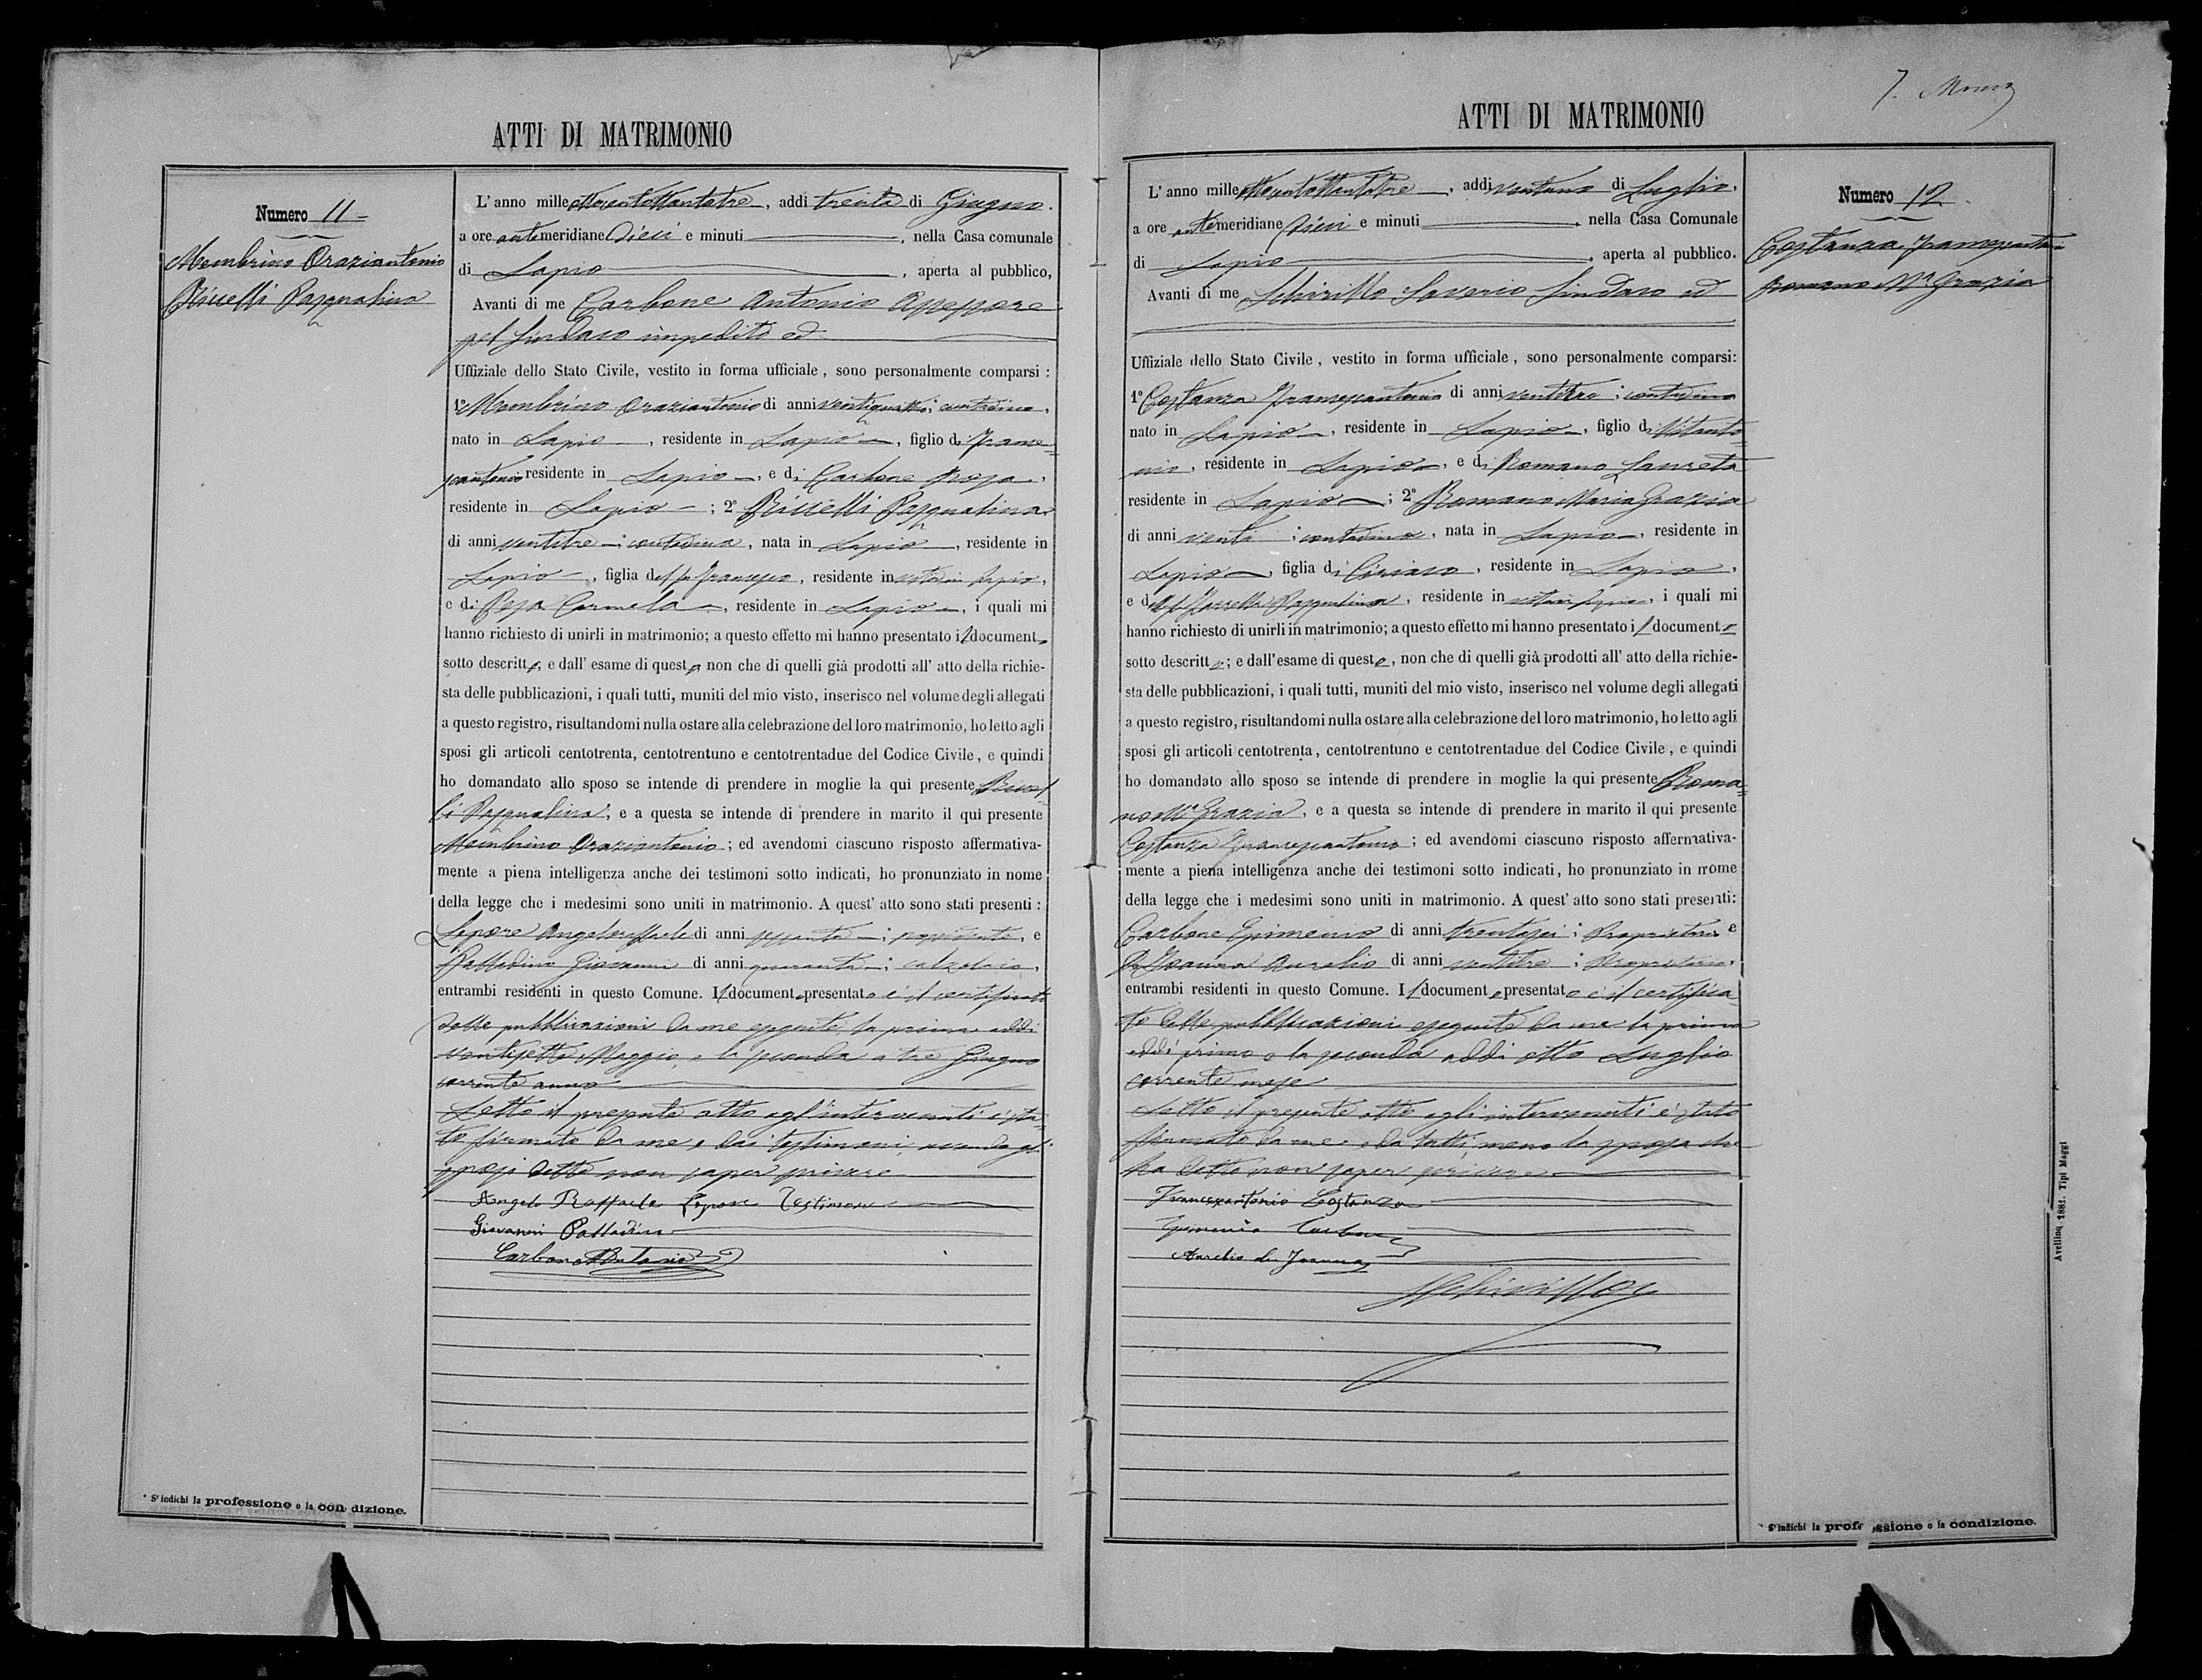 ATTI DI MATRIMONIO
Numero 11
Membrino Oraziantonio
Riccelli Pasqualina
L' anno milleottocentottantatre, addi trenta di Giugno.
a ore antimeridiane dieci e minuti, nella Casa comunale
di Lapio, aperta al pubblico,
Avanti di me Carbone Antonio Assessore
pel Sindaco impedito ed
Uffiziale dello Stato Civile, vestito in forma ufficiale, sono personalmente comparsi:
1° Membrino Oraziantonio di anni ventiquattro; contadino,
nato in Lapio, residente in Lapio, figlio di France=
scantonio residente in Lapio, e di Carbone Rosa,
residente in Lapio; 2° Riccelli Pasqualina
di anni ventitre; contadina, nata in Lapio, residente in
Lapio, figlia del fu Francesco, residente in vita in Lapio,
e di Pesa Carmela, residente in Lapio, i quali mi
hanno richiesto di unirli in matrimonio; a questo effetto mi hanno presentato il documento
sotto descritto; e dall' esame di questo, non che di quelli già prodotti all' atto della richie-
sta delle pubblicazioni, i quali tutti, muniti del mio visto, inserisco nel volume degli allegati
a questo registro, risultandomi nulla ostare alla celebrazione del loro matrimonio, ho letto agli
sposi gli articoli centotrenta, centotrentuno e centotrentadue del Codice Civile, e quindi
ho domandato allo sposo se intende di prendere in moglie la qui presente Riccel
li Pasqualina, e a questa se intende di prendere in marito il qui presente
Membrino Oraziantonio; ed avendomi ciascuno risposto affermativa-
mente a piena intelligenza anche dei testimoni sotto indicati, ho pronunziato in nome
della legge che i medesimi sono uniti in matrimonio. A quest' atto sono stati presenti:
Lepore Angeloraffaele di anni sessanta;, e
Palladino Giovanni di anni quaranta; calzolaio,
entrambi residenti in questo Comune. Il documento presentato è il certificato
delle pubblicazioni da me eseguite, la prima addi
ventisette Maggio, e la seconda a tre Giugno
corrente anno
Letto il presente atto agl'intervenuti è sta=
to firmato da me e dai testimoni, avendo gli
sposi detto non saper scrivere
Angelo Raffaele Lepore Testimone
Giovanni Palladino
Carbone Antonio
* S'indichi la professione o la condizione.
ATTI DI MATRIMONIO
Numero 12
Costanza Francescantonio
Romano Ma Grazia
L' anno milleottocentottantatre, addi ventuno di Luglio,
a ore antimeridiane dieci e minuti, nella Casa Comunale
di Lapio, aperta al pubblico.
Avanti di me Schirillo Saverio Sindaco ed
Uffiziale dello Stato Civile, vestito in forma ufficiale, sono personalmente comparsi:
1° Costanza Francescantonio di anni ventitre; contadino
nato in Lapio, residente in Lapio, figlio di Vitanto=
nio, residente in Lapio, e di Romano Laureta
residente in Lapio; 2° Romano Maria Grazia
di anni venti; contadina, nata in Lapio, residente in
Lapio, figlia di Ciriaco, residente in Lapio,
e della fu Pasqualina, residente in vita in Lapio, i quali mi
hanno richiesto di unirli in matrimonio; a questo effetto mi hanno presentato il documento
sotto descritto; e dall'esame di questo, non che di quelli già prodotti all' atto della richie-
sta delle pubblicazioni, i quali tutti, muniti del mio visto, inserisco nel volume degli allegati
a questo registro, risultandomi nulla ostare alla celebrazione del loro matrimonio, ho letto agli
sposi gli articoli centotrenta, centotrentuno e centotrentadue del Codice Civile, e quindi
ho domandato allo sposo se intende di prendere in moglie la qui presente Roma=
no Ma Grazia, e a questa se intende di prendere in marito il qui presente
Costanza Francescantonio; ed avendomi ciascuno risposto affermativa-
mente a piena intelligenza anche dei testimoni sotto indicati, ho pronunziato in nome
della legge che i medesimi sono uniti in matrimonio. A quest' atto sono stati presenti:
Carbone Epimenio di anni trentasei; Proprietario e
De Joanna Aurelio di anni ventitre; Proprietario,
entrambi residenti in questo Comune. Il documento presentato è il certifica=
to delle pubblicazioni eseguite da me la prima
addì primo e la seconda addi otto Luglio
corrente mese
Letto il presente atto agli intervenuti è stato
firmato da me e da tutti, meno la sposa che
ha detto non saper scrivere
Francescantonio Costanza
Epimenio Carbone
Aurelio de Joanna
Schirillo
Avellino 1882. Tipi Maggi
* S'indichi la professione o la condizione.